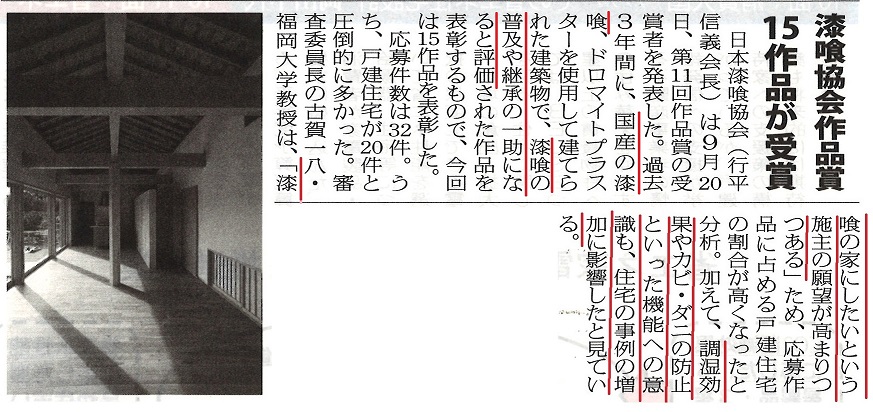 漆喰協会作品賞
15作品が受賞
日本漆喰協会（行平
信義会長）は９月20
日、第11回作品賞の受
賞者を発表した。過去
３年間に、国産の漆
喰、ドロマイトプラス
ターを使用して建てら
れた建築物で、漆喰の
普及や継承の一助にな
ると評価された作品を
表彰するもので、今回
は15作品を表彰した。
応募件数は32件。う
ち、戸建住宅が20件と
圧倒的に多かった。審
査委員長の古賀一八・
福岡大学教授は、「漆
喰の家にしたいという
施主の願望が高まりつ
つある」ため、応募作
品に占める戸建住宅
の割合が高くなったと
分析。加えて、調湿効
果やカビ・ダニの防止
といった機能への意
識も、住宅の事例の増
加に影響したと見てい
る。